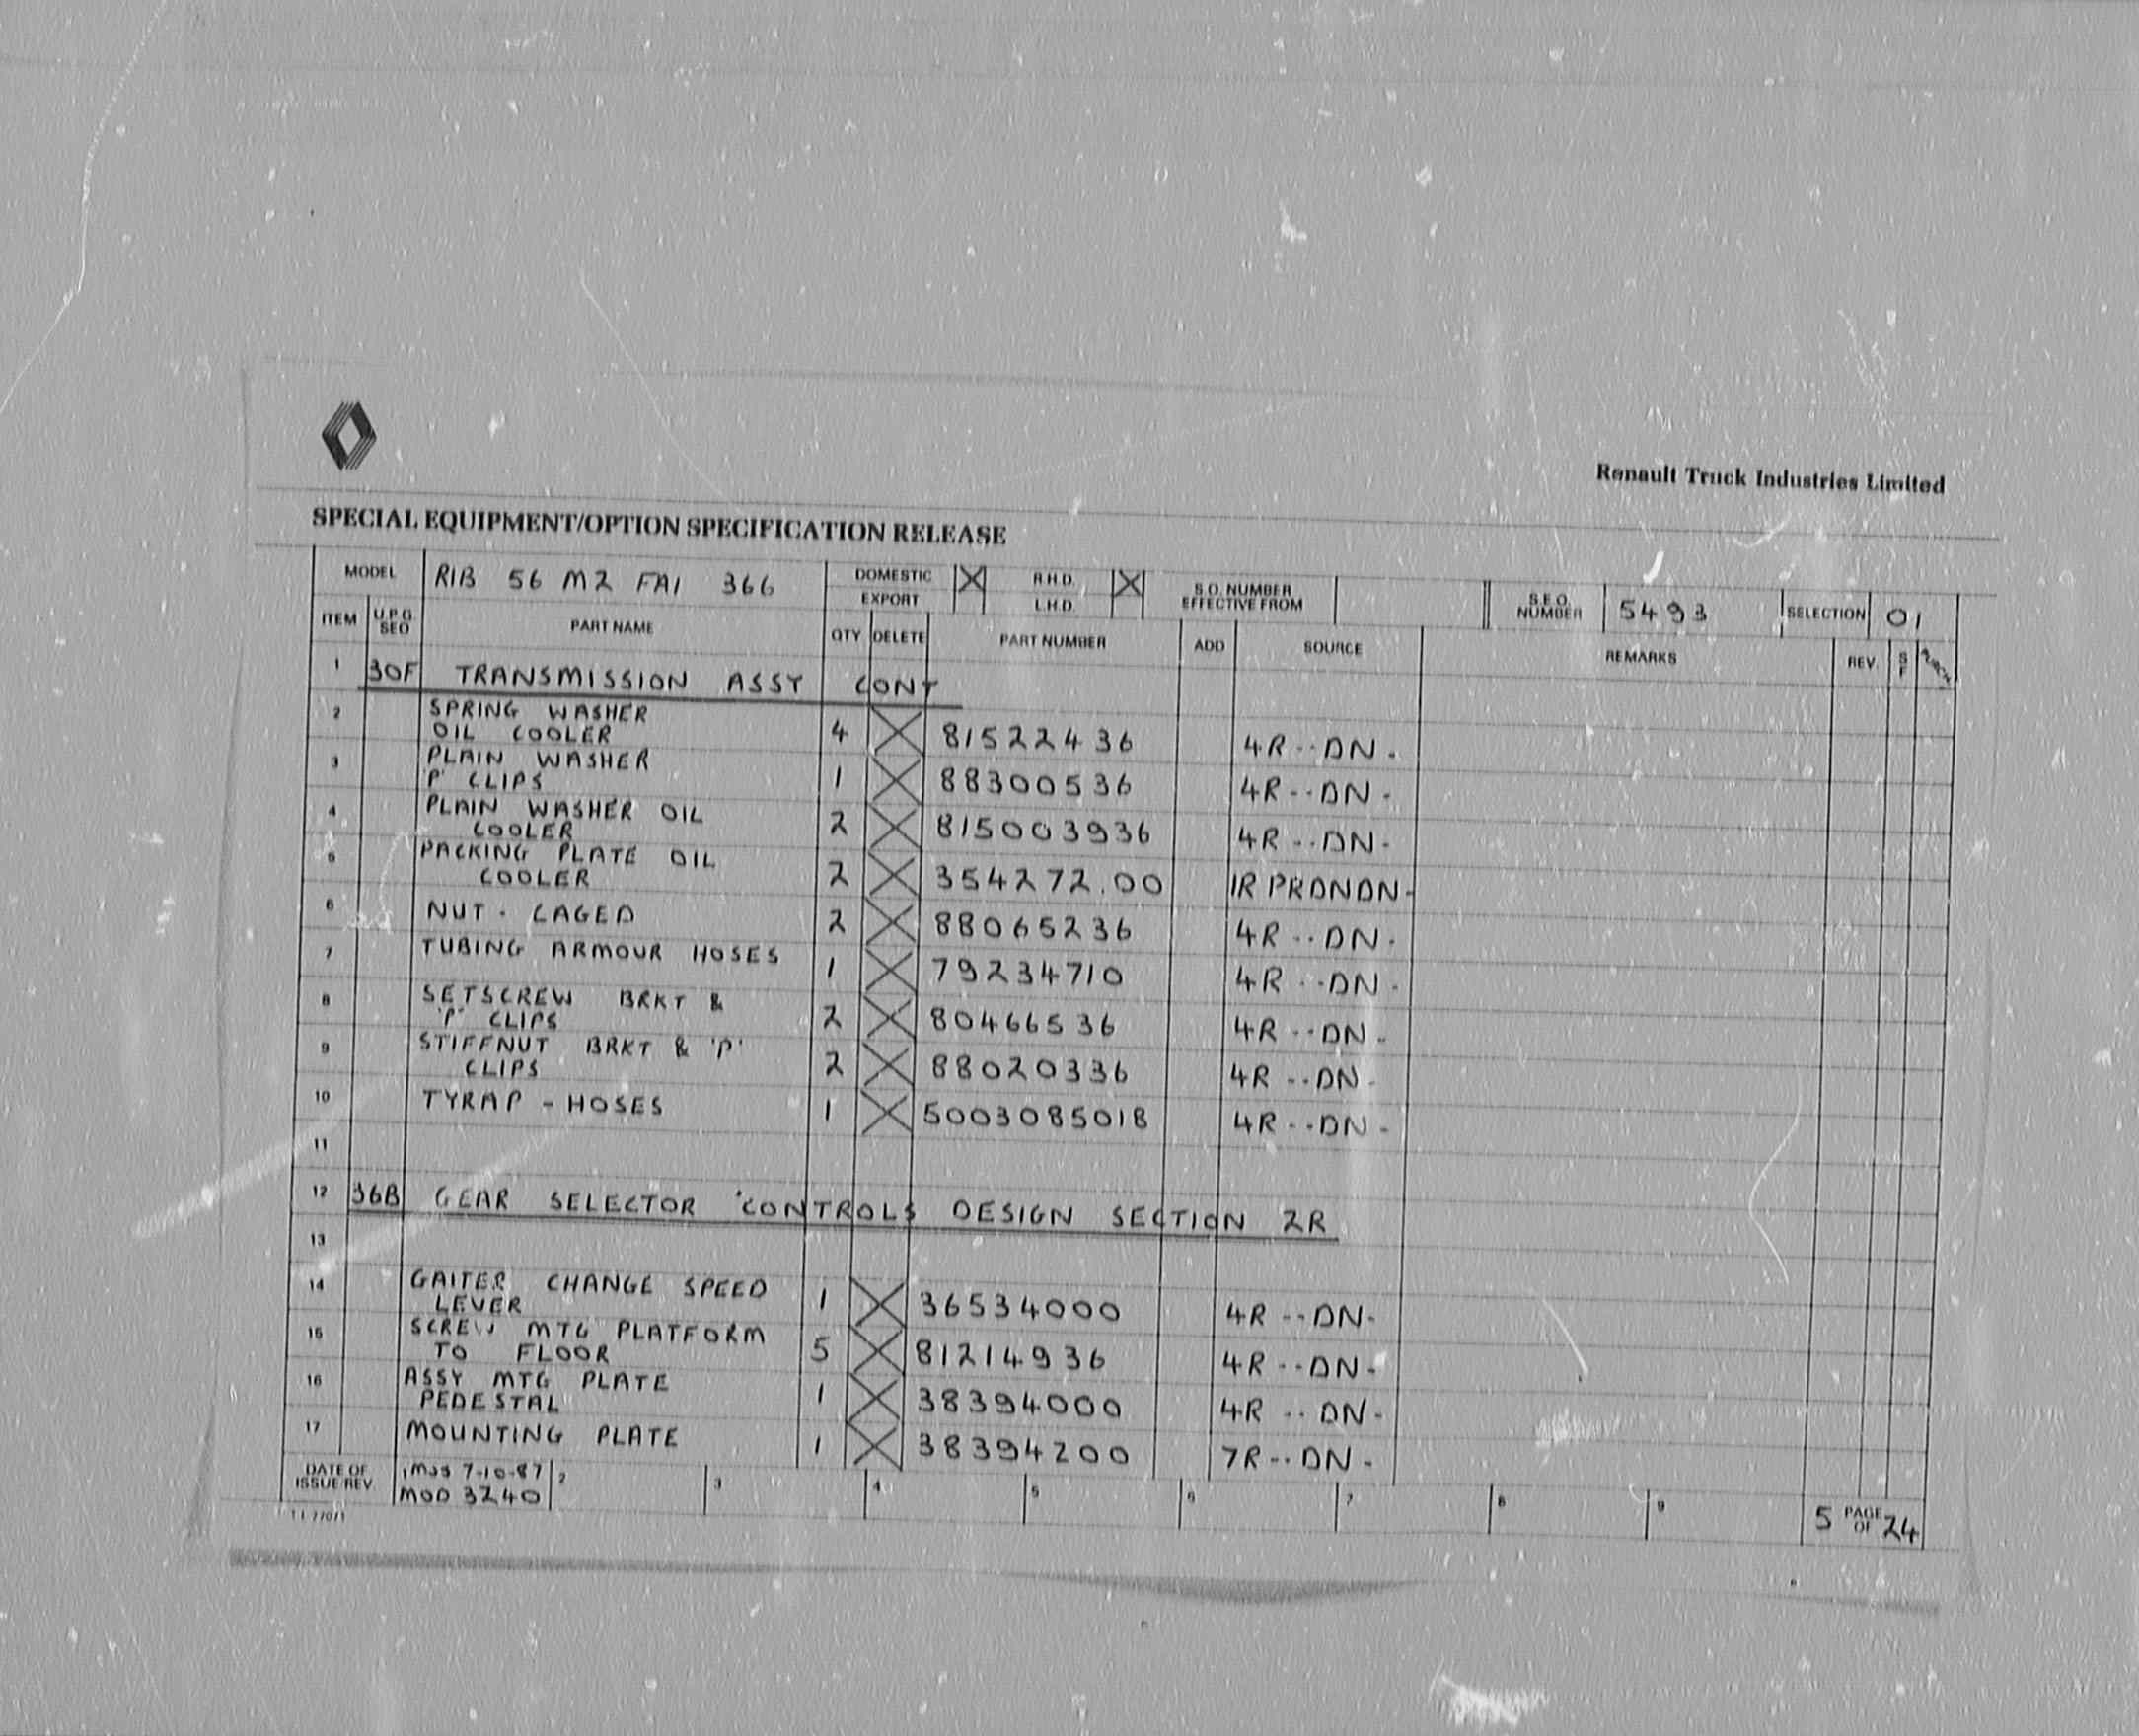 Renault Truck Industries Limited
SPECIAL EQUIPMENT/OPTION SPECIFICATION RELEASE
MODEL RIB 56 M2 FAI 366 DOMESTIC X R.H.D. X S.O. NUMBER EFFECTIVE FROM S.E.O. NUMBER 5493 SELECTION 01
EXPORT L.H.D.
ITEM U.P.G. SEQ PART NAME QTY DELETE PART NUMBER ADD SOURCE REMARKS REV. S F
1 30F TRANSMISSION ASSY CONT
2 SPRING WASHER
OIL COOLER 4 X 81522436 4R--DN-
3 PLAIN WASHER
'P' CLIPS 1 X 88300536 4R--DN-
4 PLAIN WASHER OIL
COOLER 2 X 815003936 4R--DN-
5 PACKING PLATE OIL
COOLER 2 X 354272.00 1R PRDNDN-
6 NUT - CAGED 2 X 88065236 4R--DN-
7 TUBING ARMOUR HOSES 1 X 79234710 4R--DN-
8 SETSCREW BRKT &
'P' CLIPS 2 X 80466536 4R--DN-
9 STIFFNUT BRKT & 'P'
CLIPS 2 X 88020336 4R--DN-
10 TYRAP - HOSES 1 X 5003085018 4R--DN-
11
12 36B GEAR SELECTOR CONTROLS DESIGN SECTION 2R
13
14 GAITER CHANGE SPEED
LEVER 1 X 36534000 4R--DN-
15 SCREW MTG PLATFORM
TO FLOOR 5 X 81214936 4R--DN-
16 ASSY MTG PLATE
PEDESTAL 1 X 38394000 4R--DN-
17 MOUNTING PLATE 1 X 38394200 7R--DN-
DATE OF ISSUE/REV. 1 7-10-87 2 3 4 5 6 7 8 9 5 PAGE OF 24
MOD 3240